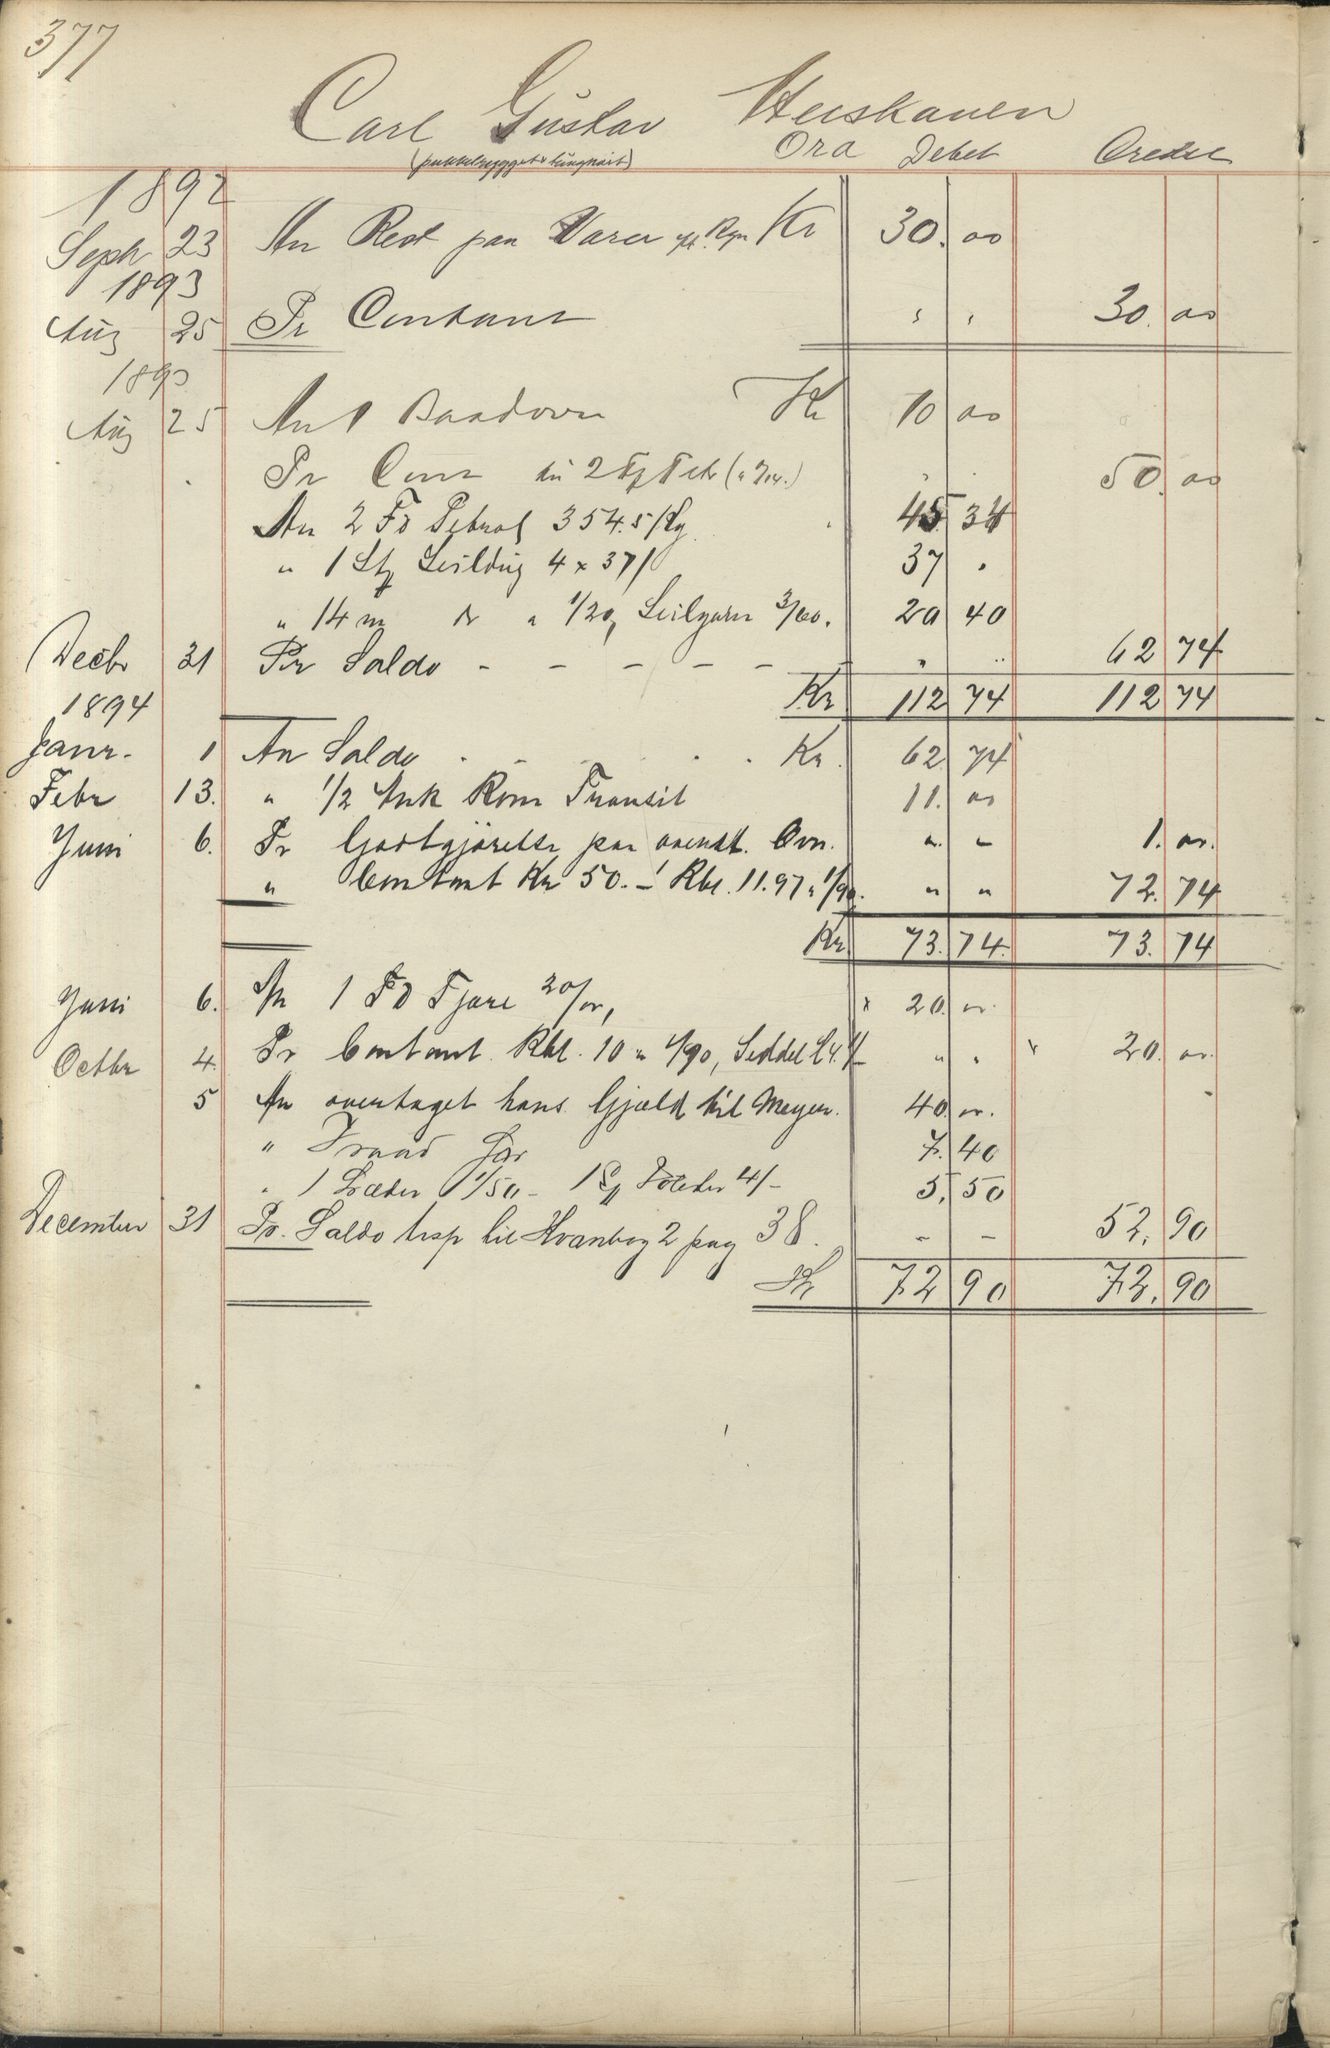 377
Carl Gustav Heiskanen
Ora Debet Credit
1892
Septr 23 An Rest paa Varer Kr 30.00
1893
Aug 25 Pr Contant " " 30.00
1893
Aug 25 An 1 Baadovn Kr 10 00
Pr Cont 50.00
An 2 Fd Petrol 354.5/Kg 45 34
" 1 St Seildug 4 x 37/ 37 "
" 14 m do " 1/20, Seilgarn 3/60. 20 40
Decbr 31 Pr Saldo - - - - - - " " 62 74
Kr 112 74 112 74
1894
Janr. 1 An Saldo Kr. 62 74
Febr 13. " 1/2 Ank Rom Transit 11. 00
Juni 6. Pr Godtgjørelse paa ovenst. Ovn. " " 1. 00.
" Contant Kr 50. - Rbl. 11.97 a 1/90. " " 72. 74
Kr. 73. 74. 73. 74
Juni 6. An 1 Fd Tjære 20/00, 20. 00
Octbr 4. Pr Contant Rbl. 10 a 1/90, Seddel " " 20. 00.
5 An overtaget hans Gjæld til Meyer. 40. 00.
" Traad 7. 40
" 1 Læder 1/50 - 1 4/- 5. 50
December 31 Pr. Saldo trsp til Hvanbog 2 pag 38. - - 52. 90
Kr 72 90 72. 90